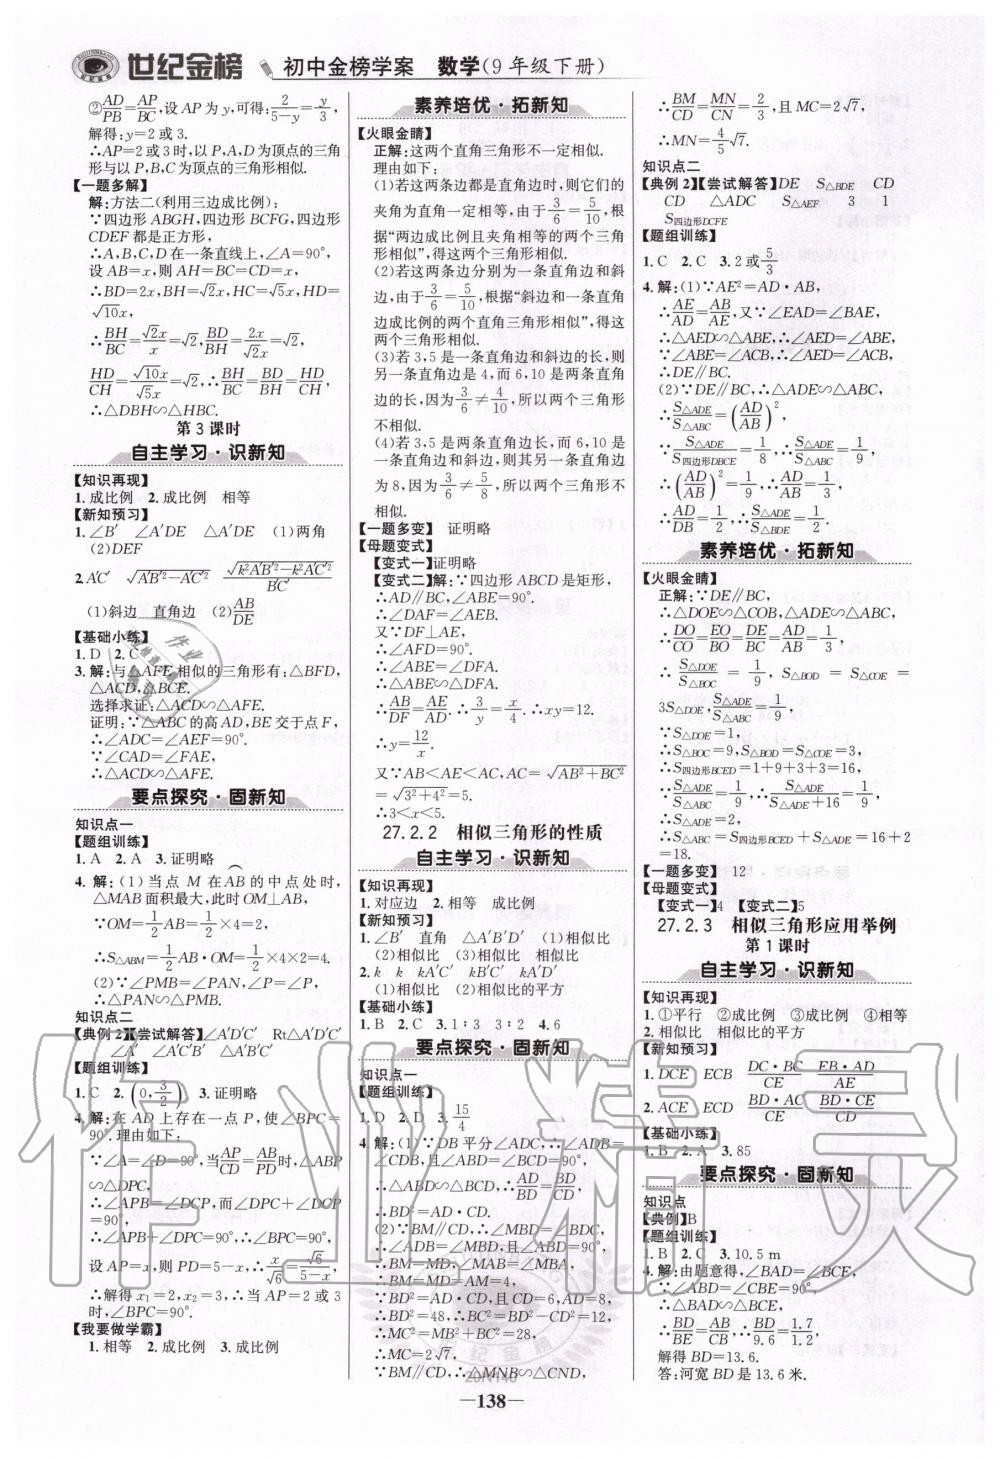 世纪金榜 初中金榜学案 数学(9年级下册)
②AD/PB=AP/BC,设AP为y,可得:2/(5-y)=y/3,
解得:y=2或3.
∴AP=2或3时,以P,A,D为顶点的三角
形与以P,B,C为顶点的三角形相似.
【一题多解】
解:方法二(利用三边成比例):
∵四边形ABGH,四边形BCFG,四边形
CDEF都是正方形,
∴A,B,C,D在一条直线上,∠A=90°.
设AB=x,则AH=BC=CD=x,
∴BD=2x,BH=√2x,HC=√5x,HD=
√10x,
∴BH/BC=√2x/x=√2,BD/BH=2x/√2x=√2,
HD/CH=√10x/√5x=√2,∴BH/BC=BD/BH=HD/CH,
∴△DBH∽△HBC.
第3课时
自主学习·识新知
【知识再现】
1.成比例 2.成比例 相等
【新知预习】
1.∠B′ ∠A′DE △A′DE (1)两角
(2)DEF
2.A′C′ √(A′B′²-A′C′²) √(k²A′B′²-k²A′C′²)/B′C′
(1)斜边 直角边 (2)AB/DE
【基础小练】
1.D 2.C
3.解:与△AFE相似的三角形有:△BFD,
△ACD,△BCE.
选择求证:△ACD∽△AFE.
证明:∵△ABC的高AD,BE交于点F,
∴∠ADC=∠AEF=90°.
∵∠CAD=∠FAE,
∴△ACD∽△AFE.
要点探究·固新知
知识点一
【题组训练】
1.A 2.A 3.证明略
4.解:(1)当点M在AB的中点处时,
△MAB面积最大,此时OM⊥AB,
∵OM=1/2AB=1/2×4=2,
∴S△ABM=1/2AB·OM=1/2×4×2=4.
(2)∵∠PMB=∠PAN,∠P=∠P,
∴△PAN∽△PMB.
知识点二
【典例2】【尝试解答】∠A′D′C′ Rt△A′D′C′
∠A′ ∠A′C′B′ △A′B′C′
【题组训练】
1.C 2.(0,3/2) 3.证明略
4.解:在AD上存在一点P,使∠BPC=
90°.理由如下:
∵∠A=∠D=90°,当AP/CD=AB/PD时,△ABP
∽△DPC,
∴∠APB=∠DCP,而∠DPC+∠DCP
=90°,
∴∠APB+∠DPC=90°,∴∠BPC=90°,
设AP=x,则PD=5-x,∴x/√6=√6/(5-x),
∴解得x₁=2,x₂=3,∴当AP=2或3时,
∠BPC=90°.
【我要做学霸】
1.相等 2.成比例 3.成比例
素养培优·拓新知
【火眼金睛】
正解:这两个直角三角形不一定相似.
理由如下:
(1)若这两条边都是直角边时,则它们的
夹角为直角一定相等,由于3/6=5/10,根
据“两边成比例且夹角相等的两个三角
形相似”,得这两个三角形相似.
(2)若这两条边分别为一条直角边和斜
边,由于3/6=5/10,根据“斜边和一条直角
边成比例的两个直角三角形相似”,得这
两个三角形相似.
(3)若3,5是一条直角边和斜边的长,则
另一条直角边是4,而6,10是两条直角
边的长,因为3/6≠4/10,所以两个三角形不
相似.
(4)若3,5是两条直角边长,而6,10是
一条直角边和斜边的长,则另一条直角边
为8,因为3/6≠5/8,所以两个三角形不
相似.
【一题多变】 证明略
【母题变式】
【变式一】证明略
【变式二】解:∵四边形ABCD是矩形,
∴AD∥BC,∠ABE=90°.
∴∠DAF=∠AEB.
又∵DF⊥AE,
∴∠AFD=90°.
∴∠ABE=∠DFA.
∴△ABE∽△DFA.
∴AB/DF=AE/AD.∴3/y=x/4.∴xy=12.
∴y=12/x.
又∵AB<AE<AC,AC=√(AB²+BC²)
=√(3²+4²)=5.
∴3<x<5.
27.2.2 相似三角形的性质
自主学习·识新知
【知识再现】
1.对应边 2.相等 成比例
【新知预习】
1.∠B′ 直角 △A′B′D′ (1)相似比
(2)相似比 (3)相似比 相似比
2.k k kA′C′ kB′C′ k
(1)相似比 (2)相似比的平方
【基础小练】
1.B 2.C 3.1∶3 3∶2 4.6
要点探究·固新知
知识点一
【题组训练】
1.D 2.D 3.15/4
4.解:(1)∵DB平分∠ADC,∴∠ADB=
∠CDB,且∠ABD=∠BCD=90°,
∴△ABD∽△BCD,∴AD/BD=BD/CD,
∴BD²=AD·CD.
(2)∵BM∥CD,∴∠MBD=∠BDC,
∴∠ADB=∠MBD,且∠ABD=90°,
∴BM=MD,∠MAB=∠MBA,
∴BM=MD=AM=4,
∵BD²=AD·CD,且CD=6,AD=8,
∴BD²=48,∴BC²=BD²-CD²=12,
∴MC²=MB²+BC²=28,
∴MC=2√7,
∵BM∥CD,∴△MNB∽△CND,
∴BM/CD=MN/CN=2/3,且MC=2√7,
∴MN=4/5√7.
知识点二
【典例2】【尝试解答】DE S△BDE CD
CD △ADC S△AEF 3 1
S四边形DCFE
【题组训练】
1.C 2.C 3.2或5/3
4.解:(1)∵AE²=AD·AB,
∴AE/AD=AB/AE,又∵∠EAD=∠BAE,
∴△AED∽△ABE,∴∠AED=∠ABE,
∵∠ABE=∠ACB,∴∠AED=∠ACB,
∴DE∥BC.
(2)∵DE∥BC,∴△ADE∽△ABC,
∴S△ADE/S△ABC=(AD/AB)²,
∵S△ADE/S四边形DBCE=1/8,∴S△ADE/S△ABC=1/9,
∴(AD/AB)²=1/9,∴AD/AB=1/3,
∴AD/DB=1/2,∴S△ADE/S△BDE=1/2.
素养培优·拓新知
【火眼金睛】
正解:∵DE∥BC,
∴△DOE∽△COB,△ADE∽△ABC,
∴DO/CO=EO/BO=DE/BC=AD/AB=1/3,
∴S△DOE/S△BOC=1/9,S△BOD=S△COE=
3S△DOE,S△ADE/S△ABC=1/9,
∵S△DOE=1,
∴S△BOC=9,S△BOD=S△COE=3,
∴S四边形BCED=1+9+3+3=16,
∵S△ADE/S△ABC=1/9,∴S△ADE/(S△ADE+16)=1/9,
∴S△ADE=2,
∴S△ABC=S四边形BCED+S△ADE=16+2
=18.
【一题多变】 12
【母题变式】
【变式一】4 【变式二】5
27.2.3 相似三角形应用举例
第1课时
自主学习·识新知
【知识再现】
1.①平行 ②成比例 ③成比例 ④相等
2.相似比 相似比的平方
【新知预习】
1.DCE ECB DC·BC/CE EB·AD/AE
2.ACE ECD BD·AC/CE BD·CE/CD
【基础小练】
1.B 2.A 3.85
要点探究·固新知
知识点
【典例】B
【题组训练】
1.B 2.C 3.10.5 m
4.解:由题意得,∠BAD=∠BCE,
∵∠ABD=∠CBE=90°,
∴△BAD∽△BCE,
∴BD/BE=AB/CB,∴BD/9.6=1.7/1.2,
解得BD=13.6.
答:河宽BD是13.6米.
—138—
作业精灵